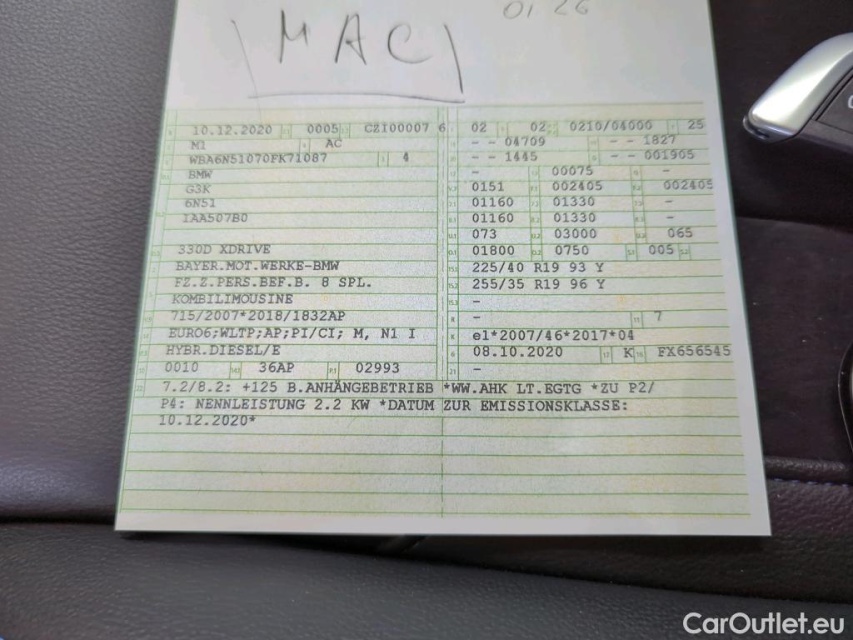 MAC
01 26
10.12.2020 0005 CZI00007 6 02 02 0210/04000 25
M1 AC - - 04709 - - 1827
WBA6N51070FK71087 4 - - 1445 - - 001905
BMW - 00075 -
G3K 0151 002405 002405
6N51 01160 01330 -
IAA507B0 01160 01330 -
073 03000 065
330D XDRIVE 01800 0750 005
BAYER.MOT.WERKE-BMW 225/40 R19 93 Y
FZ.Z.PERS.BEF.B. 8 SPL. 255/35 R19 96 Y
KOMBILIMOUSINE -
715/2007*2018/1832AP - 7
EURO6;WLTP;AP;PI/CI; M, N1 I e1*2007/46*2017*04
HYBR.DIESEL/E 08.10.2020 K FX656545
0010 36AP 02993 -
7.2/8.2: +125 B.ANHÄNGEBETRIEB *WW.AHK LT.EGTG *ZU P2/
P4: NENNLEISTUNG 2.2 KW *DATUM ZUR EMISSIONSKLASSE:
10.12.2020*
CarOutlet.eu